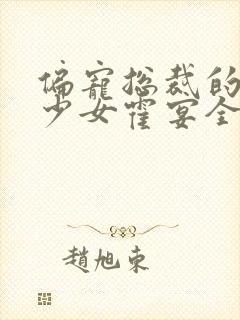 偏寵總裁的
少女霍宴全
趙旭東